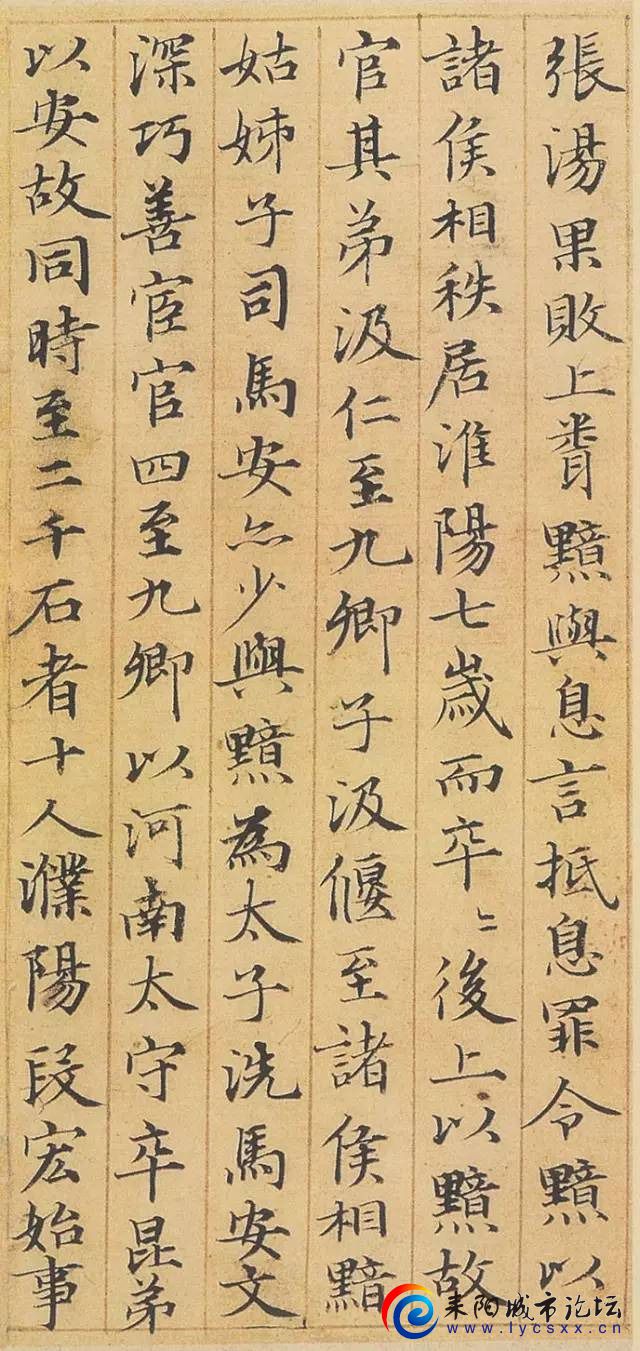 張湯果敗上聞黯與息言抵息罪令黯以
諸侯相秩居淮陽七歲而卒〻後上以黯故
官其弟汲仁至九卿子汲偃至諸侯相黯
姑姊子司馬安亦少與黯為太子洗馬安文
深巧善宦官四至九卿以河南太守卒昆弟
以安故同時至二千石者十人濮陽段宏始事
耒阳城市论坛
www.lycsxx.cn